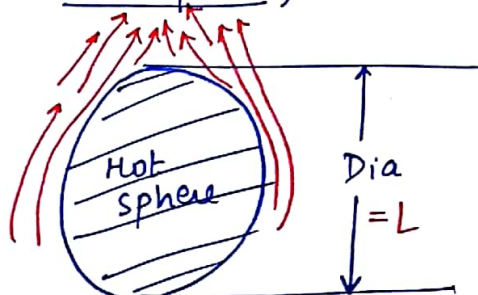 Hot
sphere
Dia
= L